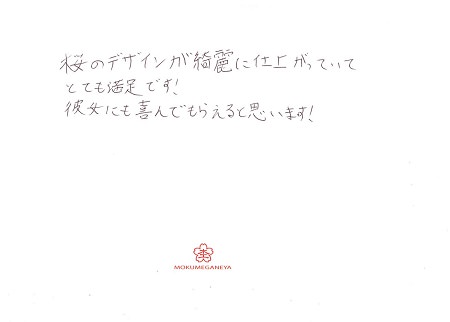 桜のデザインが綺麗に仕上がっていて
とても満足です!
彼女にも喜んでもらえると思います!
MOKUMEGANEYA